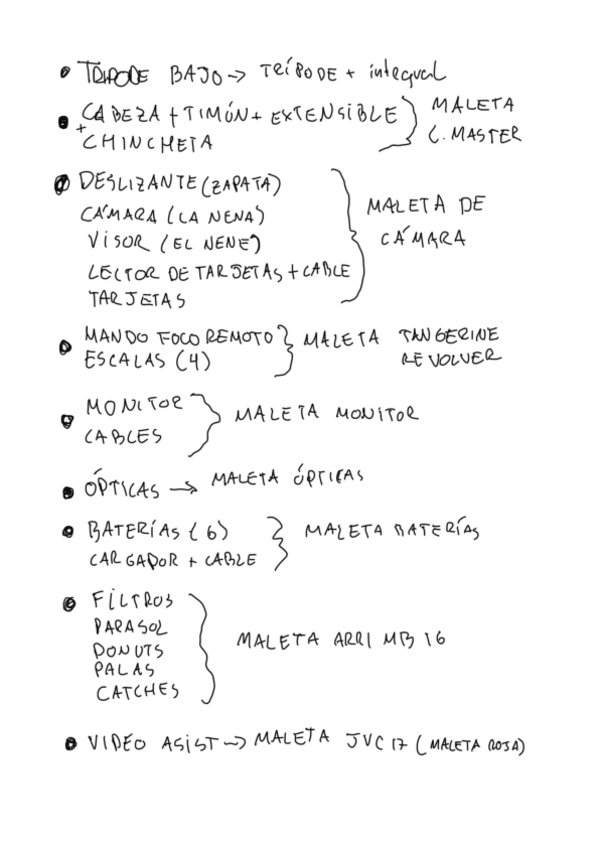 TRÍPODE BAJO → TRÍPODE + integual
CABEZA + TIMÓN + EXTENSIBLE
+ CHINCHETA
MALETA
C. MASTER
DESLIZANTE (ZAPATA)
CÁMARA (LA NENA)
VISOR (EL NENE)
LECTOR DE TARJETAS + CABLE
TARJETAS
MALETA DE
CÁMARA
MANDO FOCO REMOTO
ESCALAS (4)
MALETA TANGERINE
REVOLVER
MONITOR
CABLES
MALETA MONITOR
ÓPTICAS → MALETA ÓPTICAS
BATERÍAS (6)
CARGADOR + CABLE
MALETA BATERÍAS
FILTROS
PARASOL
DONUTS
PALAS
CATCHES
MALETA ARRI MB 16
VIDEO ASIST → MALETA JVC 17 (MALETA ROJA)